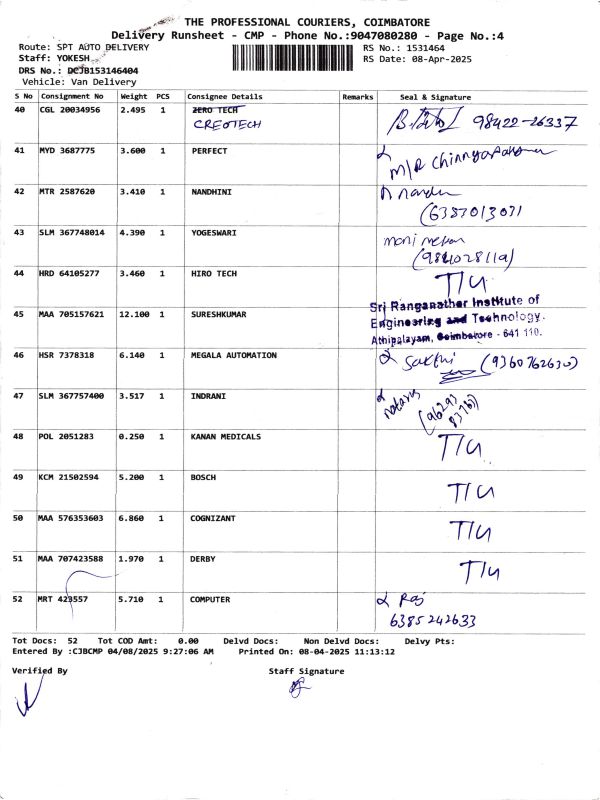 THE PROFESSIONAL COURIERS, COIMBATORE
Delivery Runsheet - CMP - Phone No.:9047080280 - Page No.:4
Route: SPT AUTO DELIVERY
RS No.: 1531464
Staff: YOKESH
RS Date: 08-Apr-2025
DRS No.: DCJB153146404
Vehicle: Van Delivery
S No Consignment No Weight PCS Consignee Details Remarks Seal & Signature
40 CGL 20034956 2.495 1 ZERO TECH 98422-26337
CREOTECH
41 MYD 3687775 3.600 1 PERFECT
M/R
42 MTR 2587620 3.410 1 NANDHINI
43 SLM 367748014 4.390 1 YOGESWARI
44 HRD 64105277 3.460 1 HIRO TECH T/U
45 MAA 705157621 12.100 1 SURESHKUMAR
Sri Ranganathar Institute of
Engineering and Technology.
Athipalayam, Coimbatore - 641 110.
46 HSR 7378318 6.140 1 MEGALA AUTOMATION Sakthi (9360762630)
47 SLM 367757400 3.517 1 INDRANI
48 POL 2051283 0.250 1 KANAN MEDICALS T/U
49 KCM 21502594 5.200 1 BOSCH T/U
50 MAA 576353603 6.860 1 COGNIZANT T/U
51 MAA 707423588 1.970 1 DERBY T/U
52 MRT 423557 5.710 1 COMPUTER Raj
6385242633
Tot Docs: 52 Tot COD Amt: 0.00 Delvd Docs: Non Delvd Docs: Delvy Pts:
Entered By :CJBCMP 04/08/2025 9:27:06 AM Printed On: 08-04-2025 11:13:12
Verified By Staff Signature